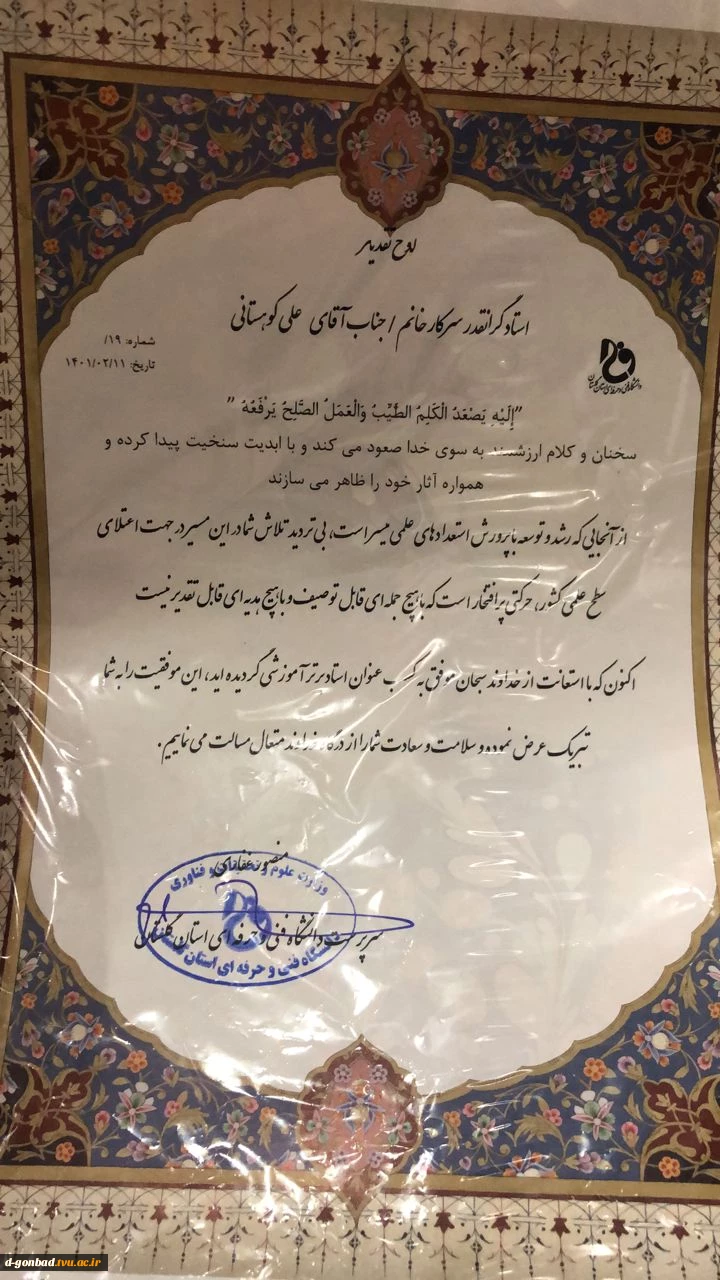 لوح تقدیر
استاد گرانقدر سرکار خانم / جناب آقای علی کوهستانی
شماره: ۱۹/
تاریخ: ۱۴۰۱/۰۲/۱۱
دانشگاه فنی و حرفه ای استان گلستان
”إِلَیْهِ یَصْعَدُ الْکَلِمُ الطَّیِّبُ وَالْعَمَلُ الصَّلِحُ یَرْفَعُهُ ”
سخنان و کلام ارزشمند به سوی خدا صعود می کند و با ابدیت سنخیت پیدا کرده و
همواره آثار خود را ظاهر می سازند
از آنجایی که رشد و توسعه با پرورش استعدادهای علمی میسر است، بی تردید تلاش شما در این مسیر در جهت اعتلای
سطح علمی کشور، حرکتی پر افتخار است که با هیچ جمله ای قابل توصیف و با هیچ هدیه ای قابل تقدیر نیست
اکنون که با استعانت از خداوند سبحان موفق به کسب عنوان استاد برتر آموزشی گردیده اید، این موفقیت را به شما
تبریک عرض نموده و سلامت و سعادت شما را از درگاه خداوند متعال مسالت می نماییم.
منصور غفاری
وزارت علوم و تحقیقات و فناوری
سرپرست دانشگاه فنی و حرفه ای استان گلستان
دانشگاه فنی و حرفه ای استان گلستان
d-gonbad.tvu.ac.ir